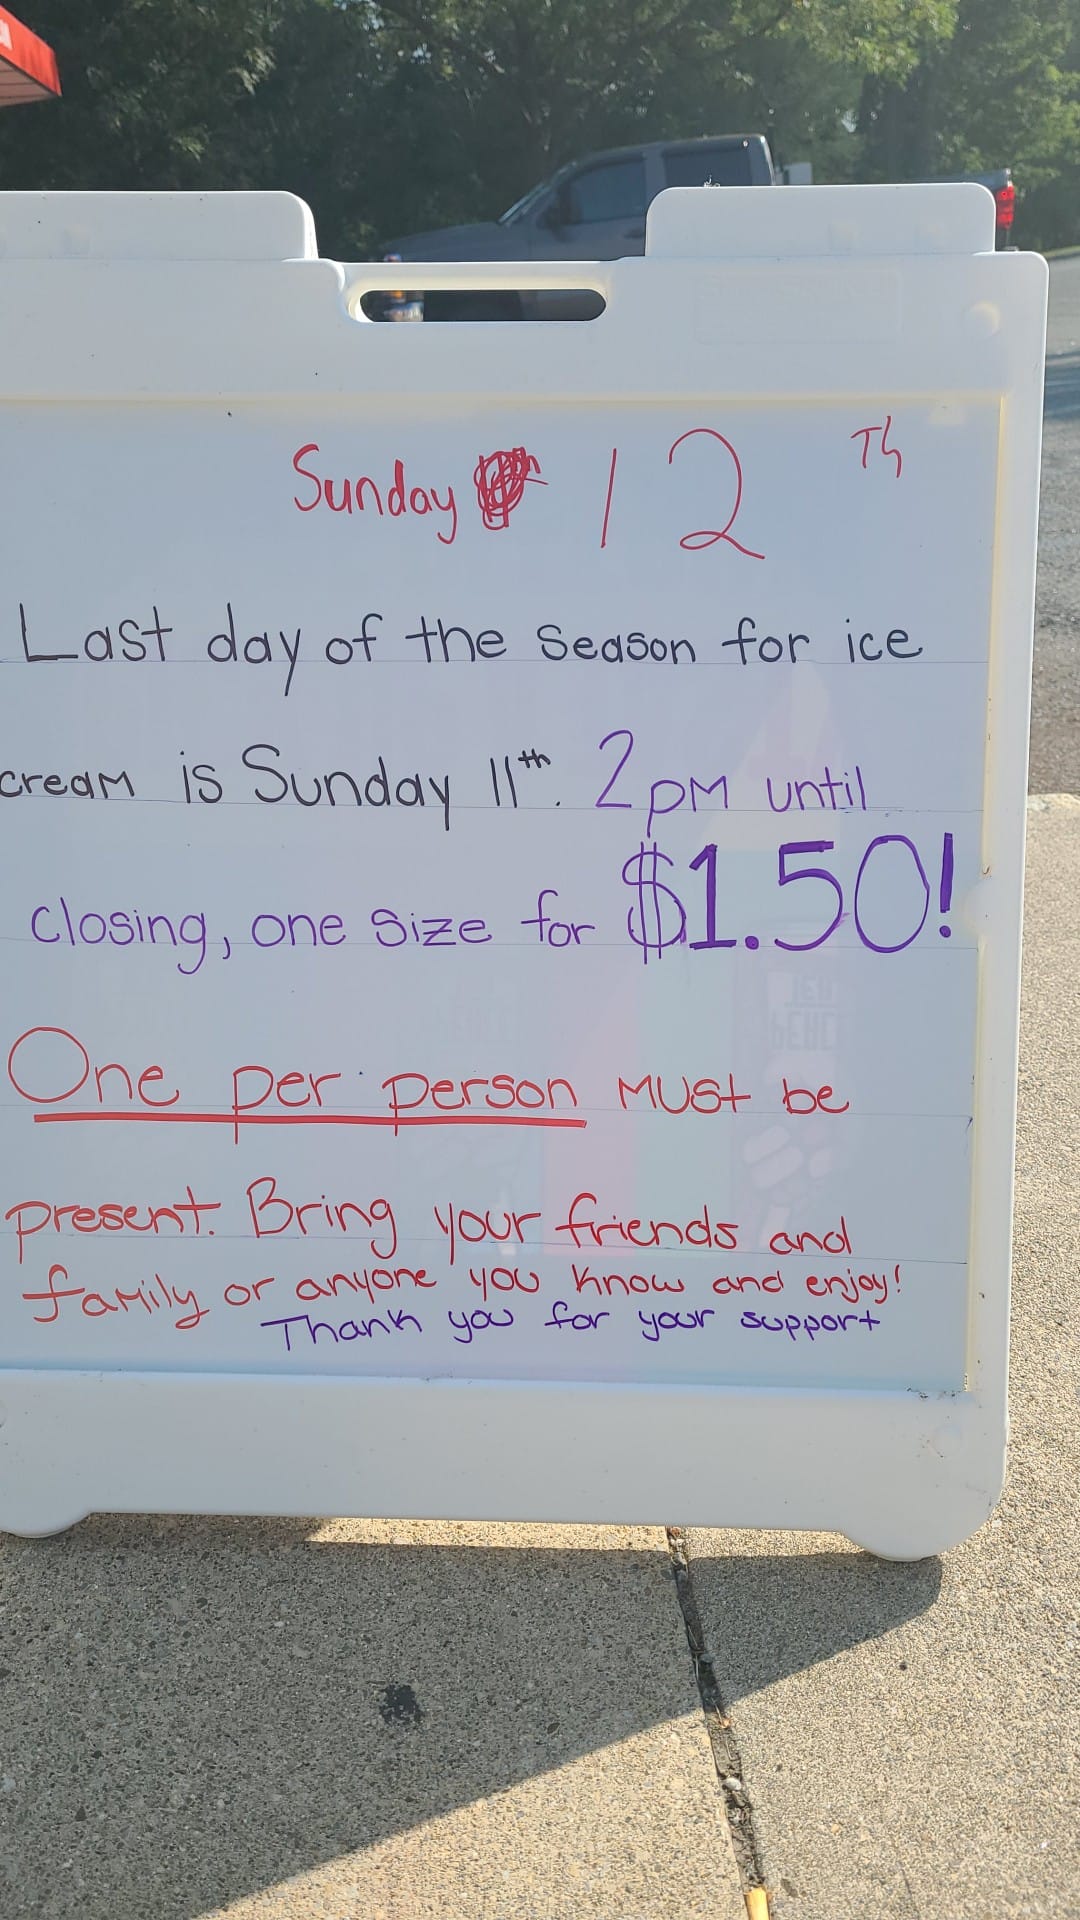 Sunday 12 Th
Last day of the season for ice
cream is Sunday 11th. 2pm until
closing, one size for $1.50!
One per person must be
present. Bring your friends and
family or anyone you know and enjoy!
Thank you for your support